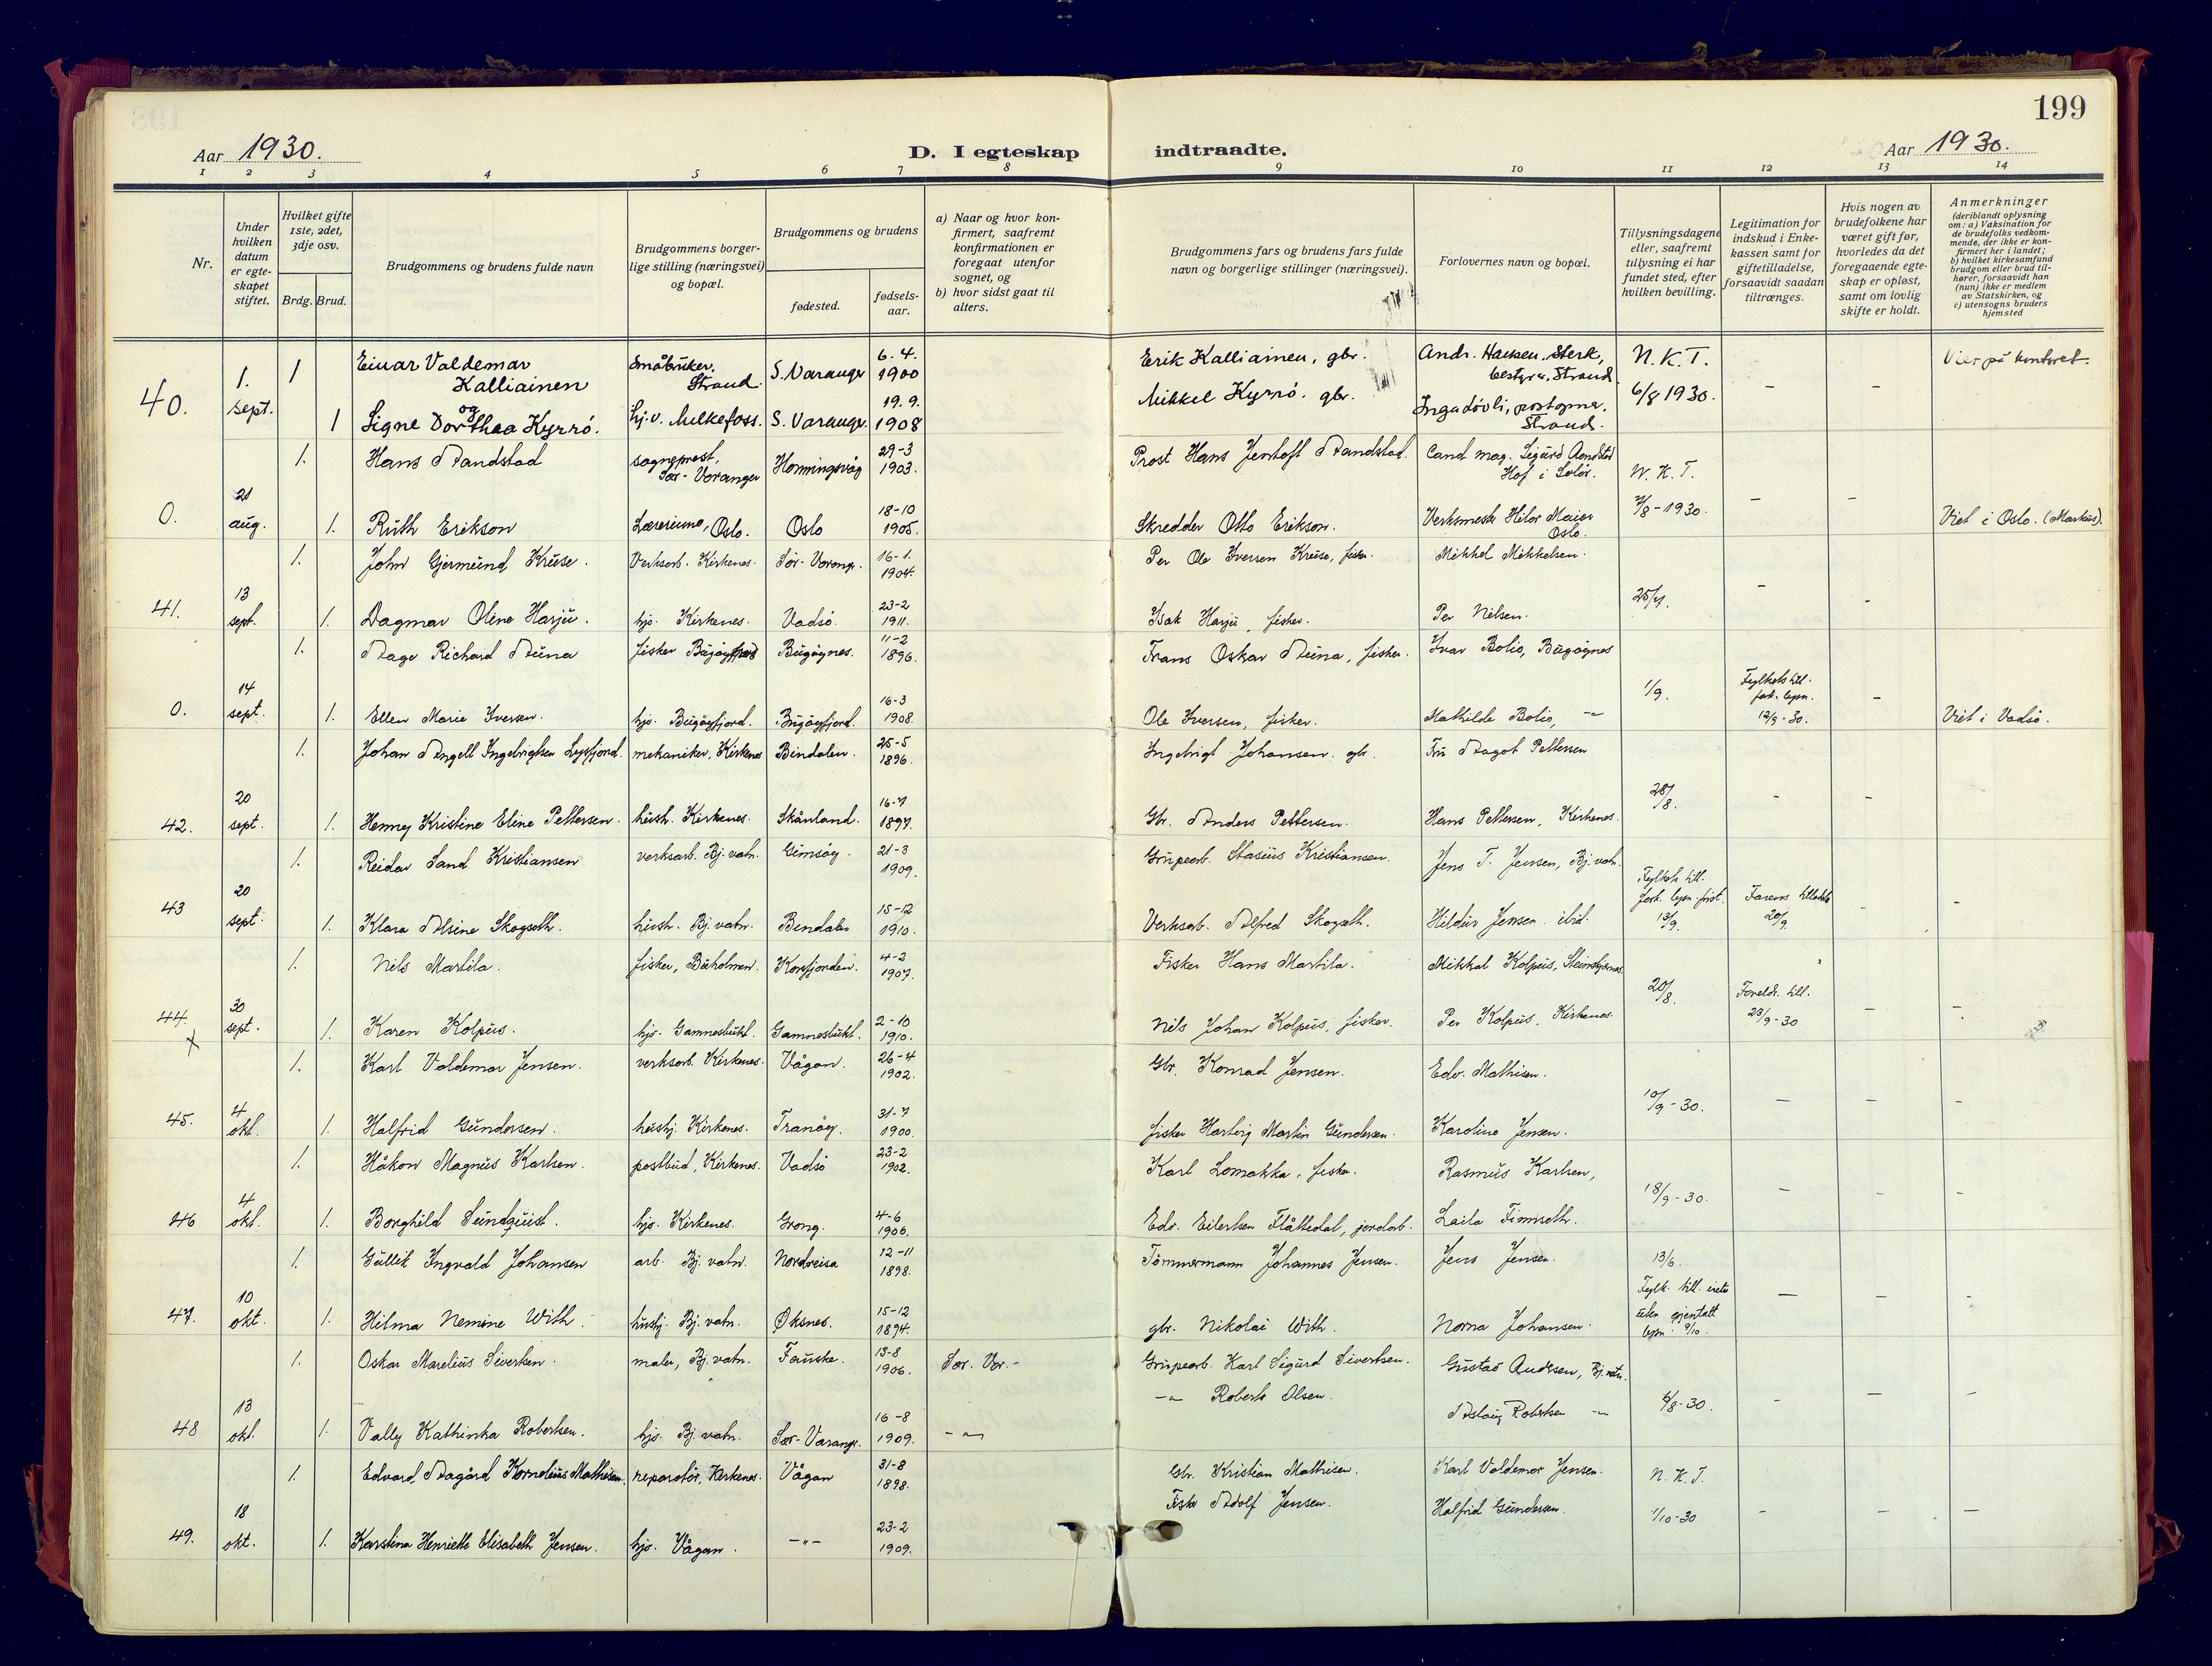 199
Aar 1930.
D. I egteskap indtraadte.
Aar 1930.
1 2 3 4 5 6 7 8 9 10 11 12 13 14
Nr.
Under hvilken datum er egteskapet stiftet.
Hvilket gifte 1ste, 2det, 3dje osv.
Brdg. Brud.
Brudgommens og brudens fulde navn
Brudgommens borgerlige stilling (næringsvei) og bopæl.
Brudgommens og brudens
fødested.
fødselsaar.
a) Naar og hvor konfirmert, saafremt konfirmationen er foregaat utenfor sognet, og
b) hvor sidst gaat til alters.
Brudgommens fars og brudens fars fulde navn og borgerlige stillinger (næringsvei).
Forlovernes navn og bopæl.
Tillysningsdagene eller, saafremt tillysning ei har fundet sted, efter hvilken bevilling.
Legitimation for indskud i Enkekassen samt for giftetilladelse, forsaavidt saadan tiltrænges.
Hvis nogen av brudefolkene har været gift før, hvorledes da det foregaaende egteskap er opløst, samt om lovlig skifte er holdt.
Anmerkninger (deriblandt oplysning om: a) Vaksination for de brudefolks vedkommende, der ikke er konfirmert her i landet; b) hvilket kirkesamfund brudgom eller brud tilhører, forsaavidt han (hun) ikke er medlem av Statskirken, og c) utensogns bruders hjemsted
40. 1. sept. 1 Einar Valdemar Kalliainen Småbruker. Strand. S. Varanger 6.4. 1900 Erik Kalliainen, gbr. Andr. Hansen. Sterk, bestyrer, Strand. N.K.T. 6/8 1930. - - Viet på kontoret.
og
1 Signe Dorthea Kyrrö. hj. v. Melkefoss. S. Varanger. 19.9. 1908 Mikkel Kyrrö. gbr. Inga dövli, Strand.
0. 21 aug. 1. Hans Aandstad sogneprest, Sør-Varanger Honningsvåg 29-3 1903. Prost Hans Jentoft Aandstad. Cand mag. Sigurd Aandstad Hof i Solör. N.K.T. 7/8-1930. - - Viet i Oslo. (Markus).
1. Ruth Erikson Lærerinne, Oslo. Oslo 18-10 1905. Skredder Otto Erikson. Verksmestr Hilor Maier Oslo.
41. 13 sept. 1. John Gjermund Kruse. Verksarb. Kirkenes. Sør-Varang. 16-1. 1904. Per Ole Iversen Kruse, fisker. Mikkel Mikkelsen. - -
1. Dagmar Oline Harju. hjv. Kirkenes. Vadsø. 23-2 1911. Isak Harju, fisker. Per Nilsen.
0. 14 sept. 1. Aage Richard Auna fisker Bugøyfjord Bugøynes. 11-2 1896. Frans Oskar Auna, fisker. Ivar Bolio, Bugøynes 1/9. Fylkets till. fork. lysn. 12/9-30. - Viet i Vadsø.
1. Ellen Marie Iversen. hjv. Bugøyfjord. Bugøyfjord. 16-3 1908. Ole Iversen, fisker. Mathilde Bolio, -"-
42. 20 sept. 1. Johan Angell Ingebrigtsen Lysfjord. mekaniker, Kirkenes Bindalen. 25-5 1896. Ingebrigt Johansen. gbr. Fru Dagot Pettersen 28/8. - -
1. Henny Kristine Eline Pettersen. hush. Kirkenes. Skånland. 16-7 1897. Gbr. Anders Pettersen. Hans Pettersen, Kirkenes.
43 20 sept. 1. Reidar Sand Kristiansen verksarb. Bj.vatn. Gimsøy. 21-3 1909. Grupearb. Stasius Kristiansen. Jens T. Jensen, Bj.vatn. Fylkets till. fork. lysn. frist. 13/9. Farens tillatelse 20/9. - -
1. Klara Alsine Skogseth. hush. Bj.vatn. Bindalen 15-12 1910. Verksarb. Alfred Skogseth. Hildur Jensen. ibid.
44. X 30 sept. 1. Nils Martila. fisker, Buholmen. Korsfjorden. 4-2 1907. Fisker Hans Martila. Mikkal Kolpus, 20/8. Foreldr. till. 23/9-30 - -
1. Karen Kolpus. hjv. Gamnesbukt. Gamnesbukt. 2-10 1910. Nils Johan Kolpus, fisker. Per Kolpus. Kirkenes.
45. 4 okt. 1. Karl Valdemar Jensen. verksarb. Kirkenes. Vågan. 26-4 1902. Gbr. Konrad Jensen. Edv. Mathisen. 10/9-30. - - -
1. Halfrid Gundersen. hushj. Kirkenes. Tranøy. 31-7 1900. fisker Hartvig Martin Gundersen. Karoline Jensen.
46 4 okt. 1. Håkon Magnus Karlsen. postbud, Kirkenes. Vadsø 23-2 1902. Karl Lomakka, fisker. Rasmus Karlsen, 18/9-30. - - -
1. Borghild Sundquist. hjv. Kirkenes. Grong. 4-6 1906. Edv. Eilertsen Flåttedal, jordarb. Laila Finnseth.
47. 10 okt. 1. Gullik Ingvald Johansen arb. Bj.vatn. Nordreisa 12-11 1898. Tömmermann Johannes Jensen. Jens Jensen. 13/6. Fylk. till. vieles uten gjentatt lysn. 9/10. - - -
1. Hilma Nemine With. hushj. Bj.vatn. Øksnes. 15-12 1894. gbr. Nikolai With. Norna Johansen.
48 13 okt. 1. Oskar Marelius Sivertsen. maler, Bj.vatn. Fauske. 13-8 1906. Sør. Var. Grupearb. Karl Sigurd Sivertsen. Gustav Andersen, Bj.vatn. 6/8-30. - - -
1. Vally Kathinka Robertsen. hjv. Bj.vatn. Sør-Varanger. 16-8 1909. -"- -"- Roberth Olsen. Aslaug Robertsen -"-
49. 18 okt. 1. Edvard Aagård Kornelius Mathisen. reparatör, Kirkenes. Vågan 31-8 1898. Gbr. Kristian Mathisen. Karl Valdemar Jensen. N.K.T. 1/10-30 - - -
1. Karstina Henriette Elisabeth Jensen. hjv. Vågan. -"- 23-2 1909. Fisker Adolf Jensen. Halfrid Gundersen.